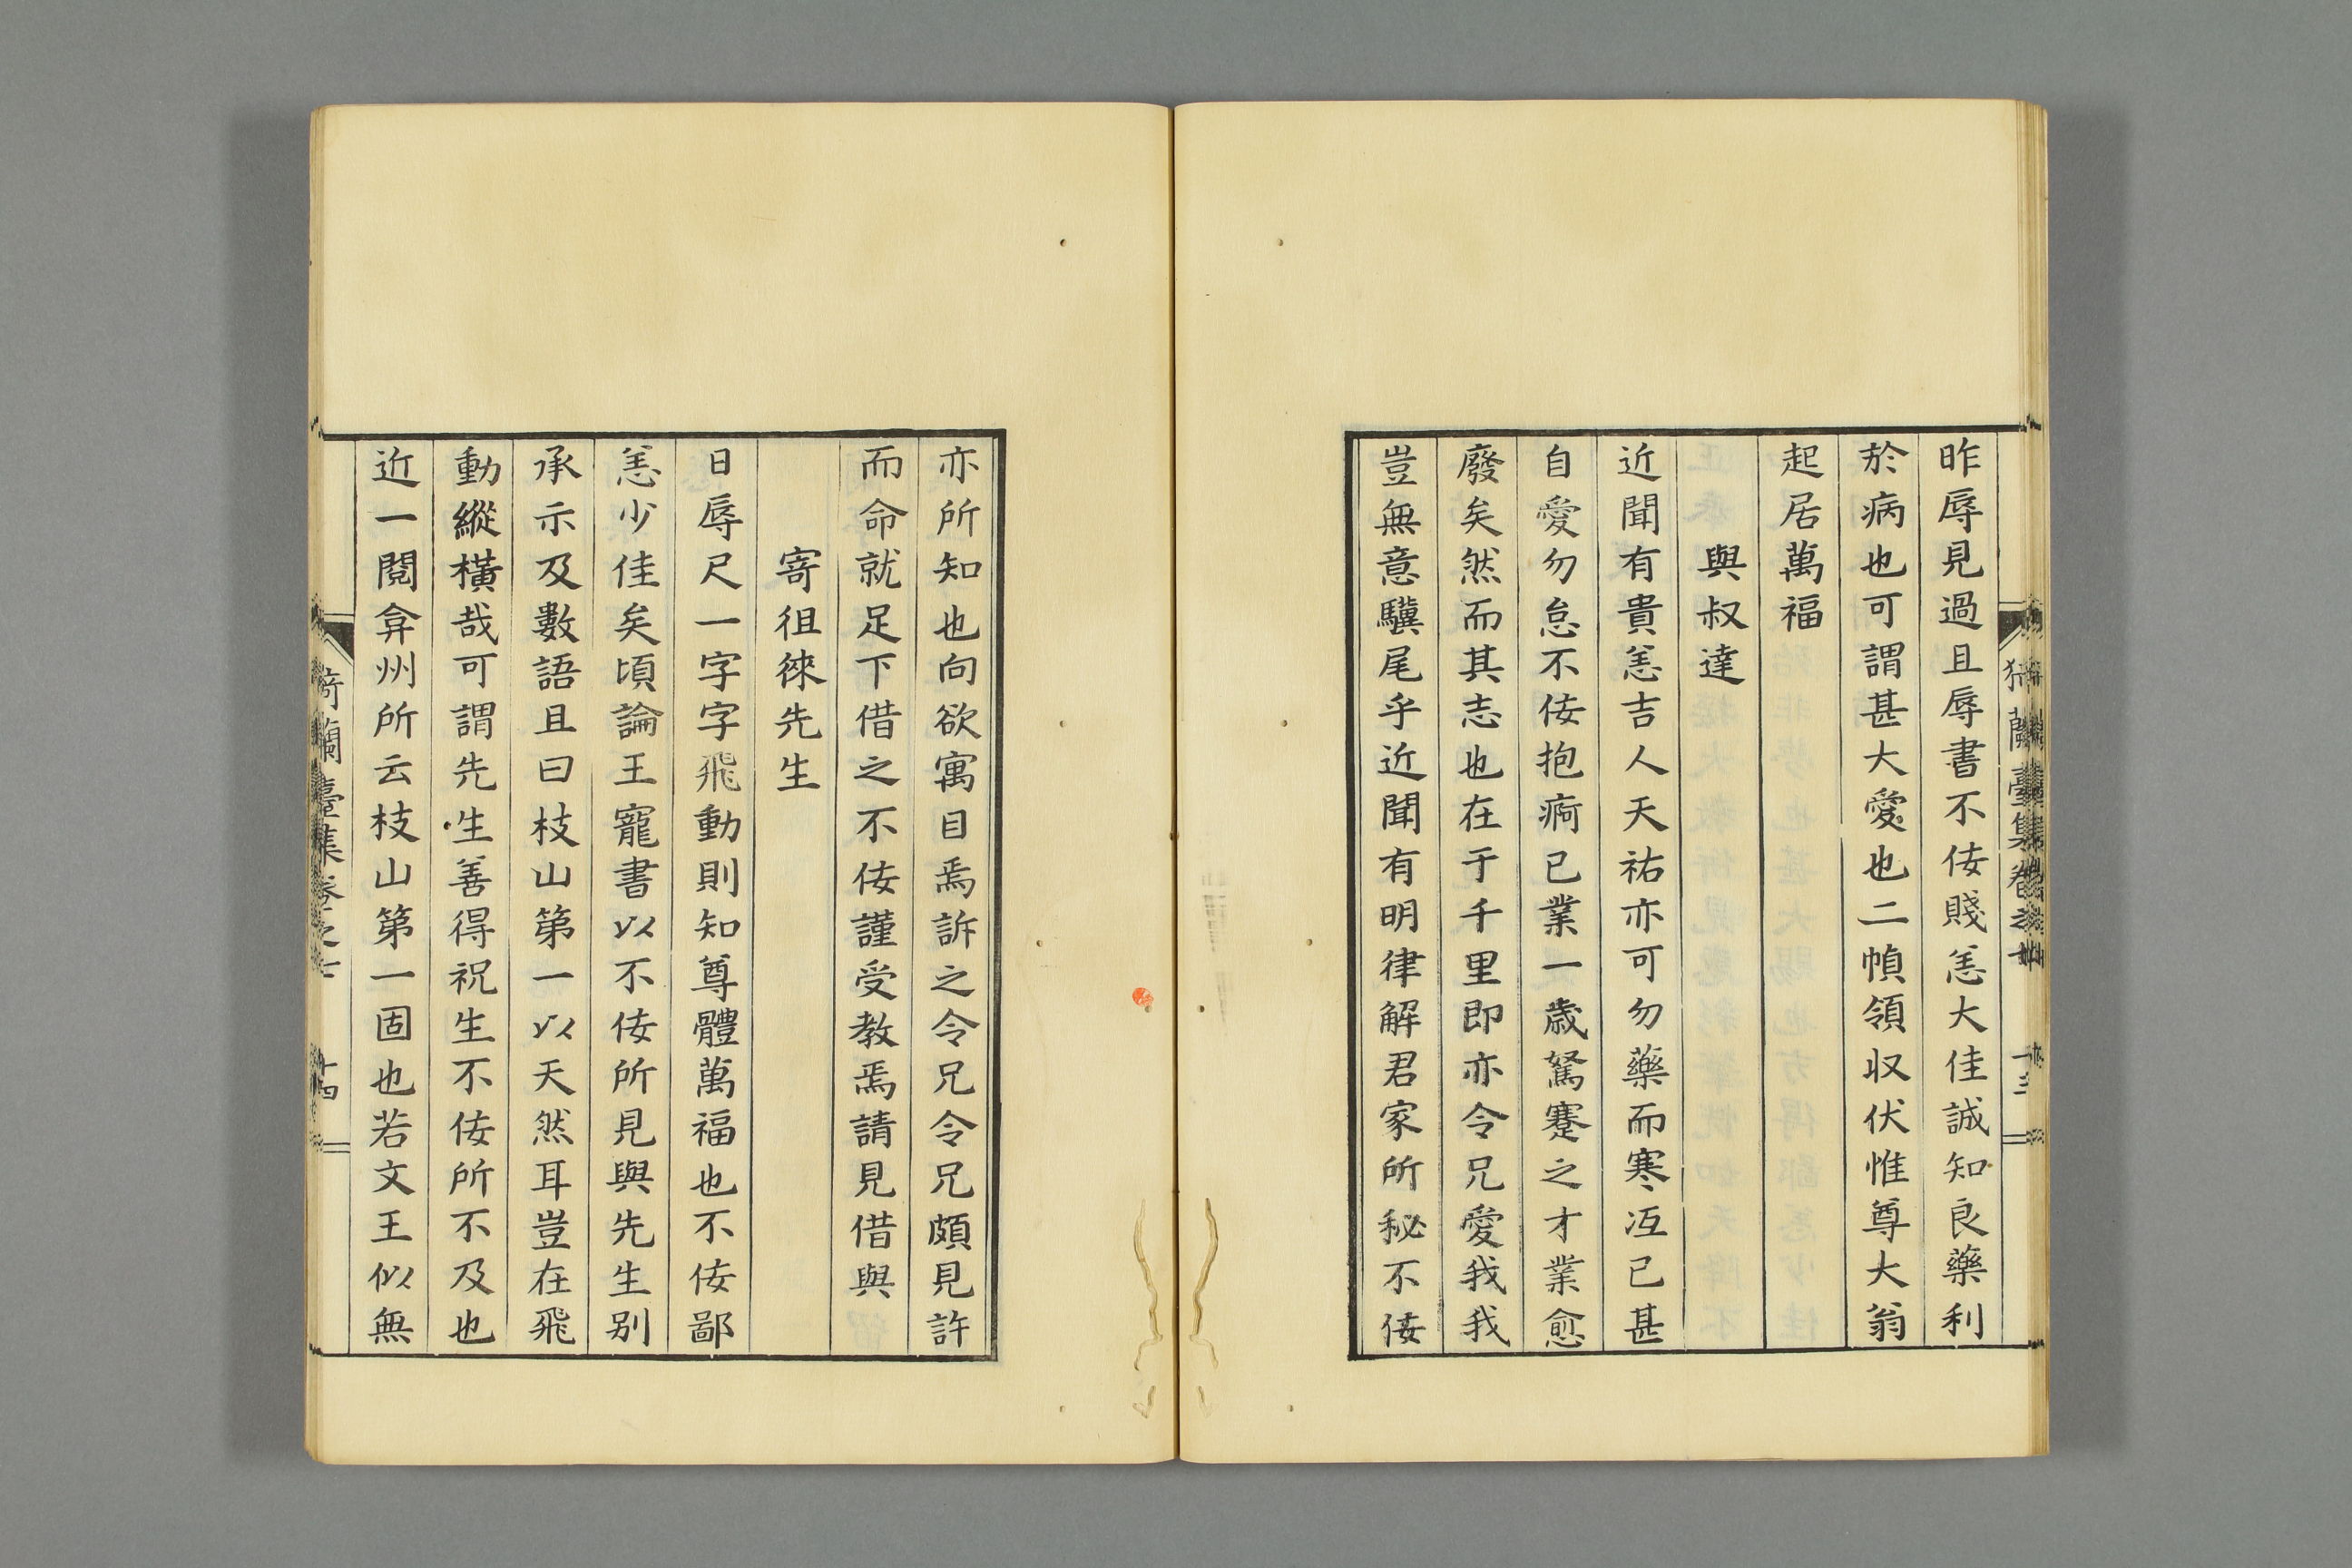 昨辱見過且辱書不佞賤恙大佳誠知良藥利
於病也可謂甚大愛也二幀領収伏惟尊大翁
起居萬福
與叔達
近聞有貴恙吉人天祐亦可勿藥而寒沍已甚
自愛勿怠不佞抱痾已業一歲駑蹇之才業愈
廢矣然而其志也在于千里即亦令兄愛我我
豈無意驥尾乎近聞有明律解君家所秘不佞
亦所知也向欲寓目焉訴之令兄令兄頗見許
而命就足下借之不佞謹受教焉請見借與
寄徂徠先生
日辱尺一字字飛動則知尊體萬福也不佞鄙
恙少佳矣頃論王寵書以不佞所見與先生別
承示及數語且曰枝山第一以天然耳豈在飛
動縱橫哉可謂先生善得祝生不佞所不及也
近一閱弇州所云枝山第一固也若文王似無
猗蘭臺集卷之七
十三
猗蘭臺集卷之七
十四